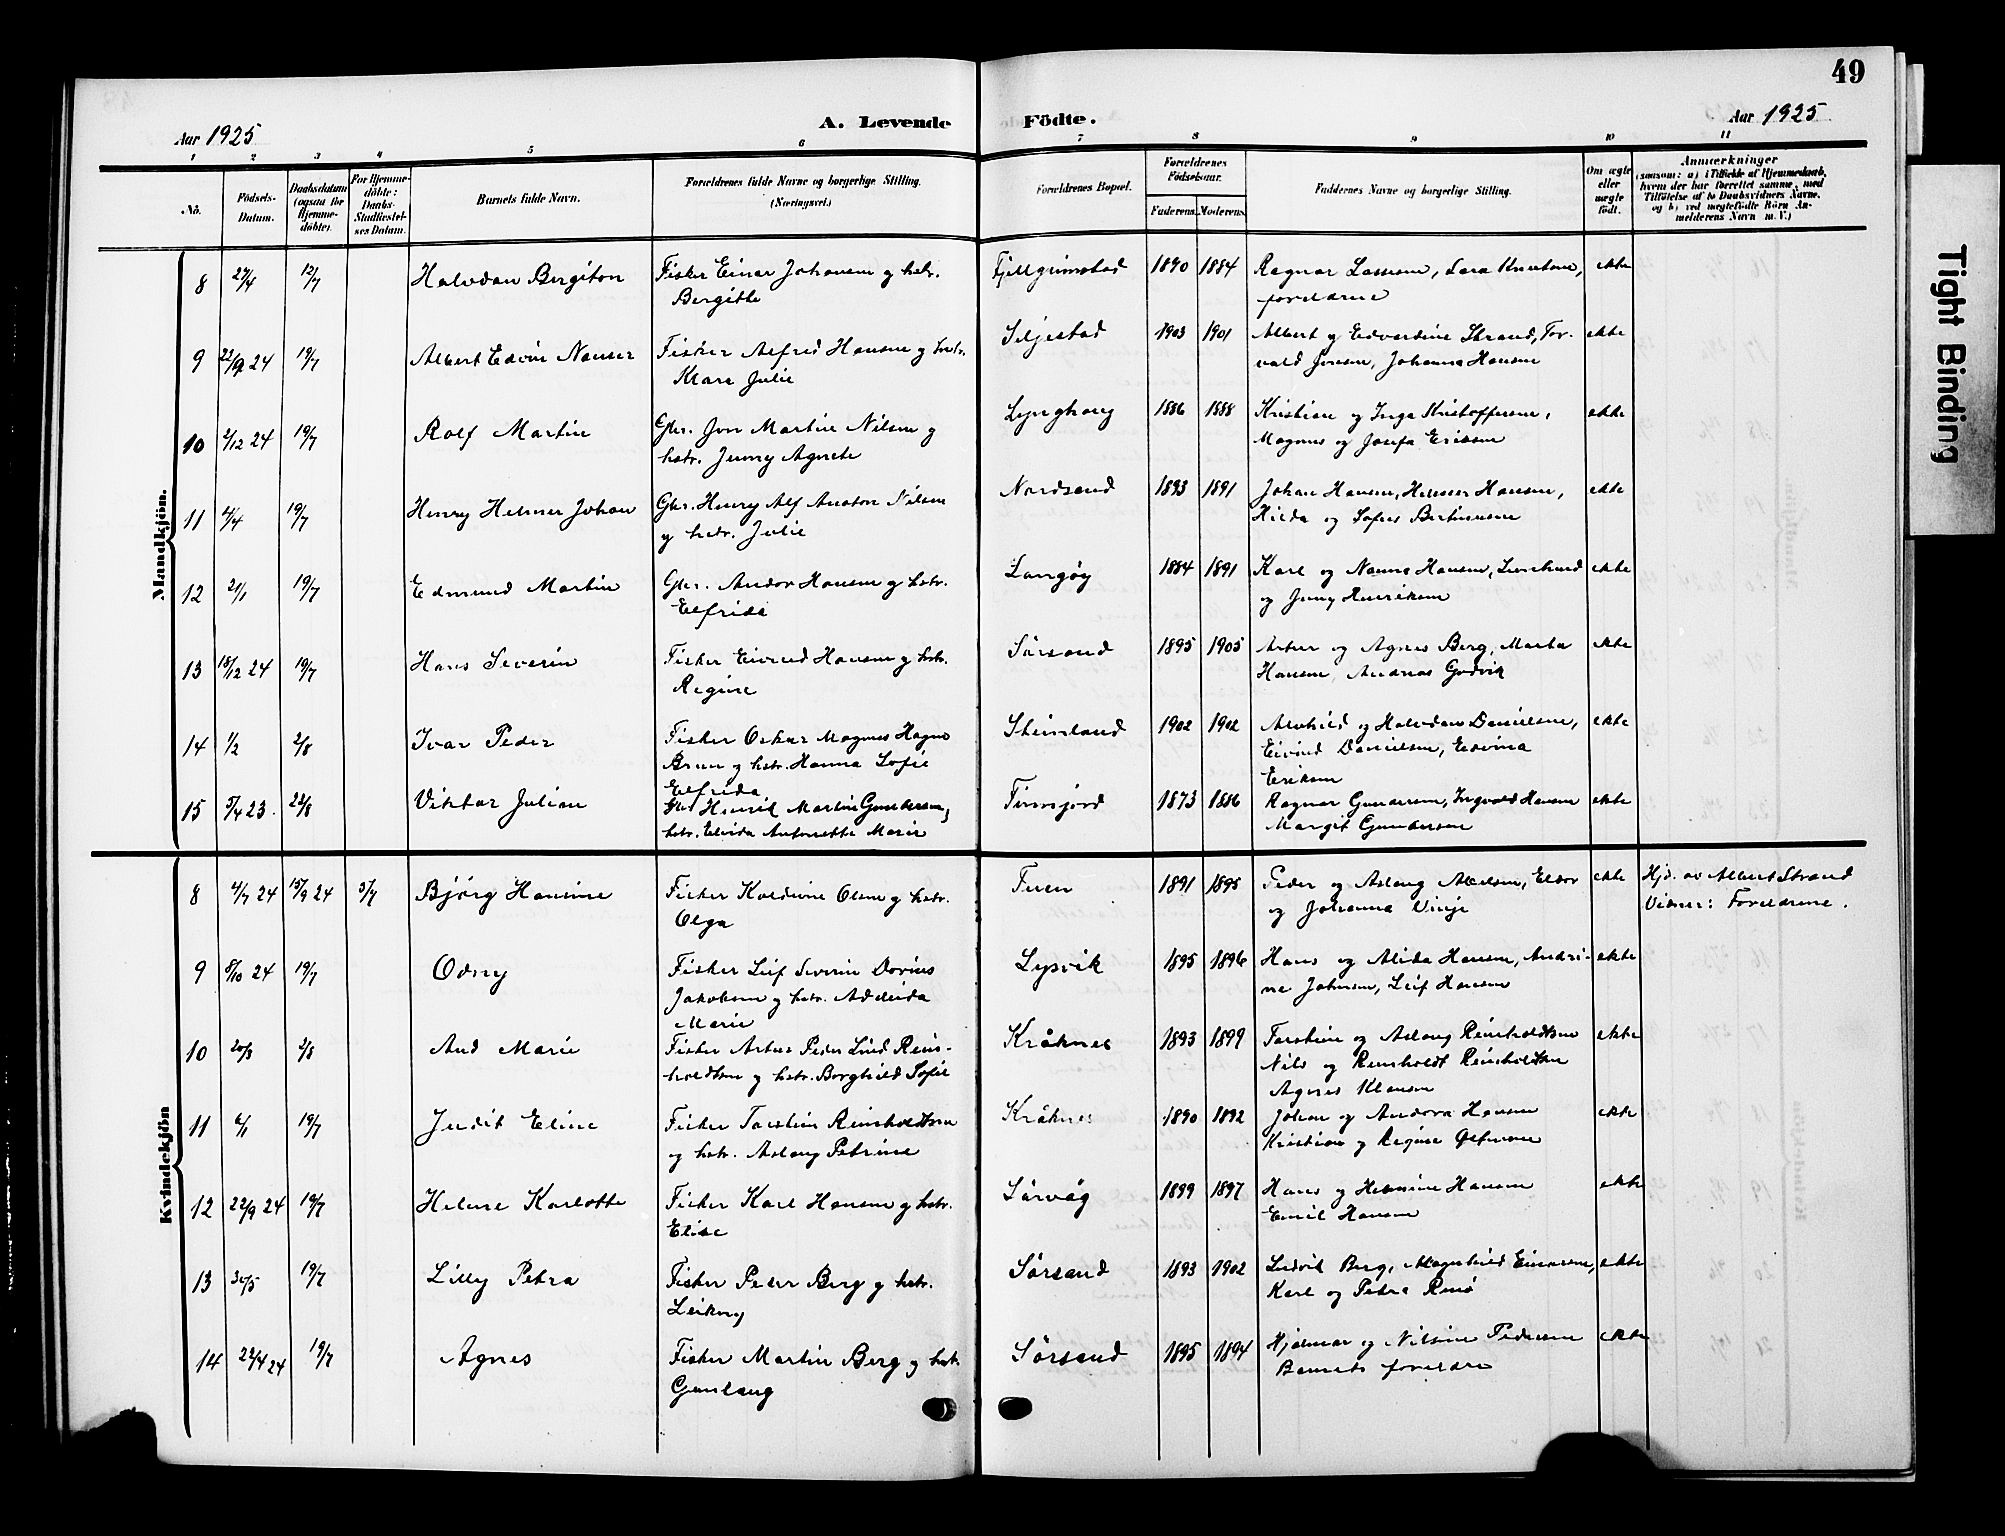 49
Aar 1925
A. Levende Födte.
Aar 1925
1 2 3 4 5 6 7 8 9 10 11
Nô.
Födsels-
Datum.
Daabsdatum
(ogsaa for
Hjemme-
döbte).
For Hjemme-
döbte:
Daabs-
Stadfæstel-
ses Datum.
Barnets fulde Navn.
Forældrenes fulde Navne og borgerlige Stilling.
(Næringsvei.)
Forældrenes Bopæl.
Forældrenes
Födselsaar.
Faderens. Moderens.
Faddernes Navne og borgerlige Stilling.
Om ægte
eller
uægte
födt.
Anmærkninger
(saasom: a) i Tilfælde af Hjemmedaab,
hvem der har forrettet samme, med
Tilföielse af to Daabsvidners Navne,
og b) ved uægtefödte Börn An-
melderens Navn m. V.)
Mandkjön.
8 27/4 12/7 Halvdan Bergiton Fisker Einar Johansen og hstr. Fjellgrimstad 1890 1884 Ragnar Lassesen, Lara Knutsen, ekte
Bergitte foreldrene
9 22/9 24 19/7 Albert Edvin Nanser Fisker Alfred Hansen og hstr. Siljestad 1903 1901 Albert og Edvardine Strand, Tor-
ekte
Klara Julie vald Jensen, Johanna Hansen
10 2/12 24 19/7 Rolf Martin Gbr. Jon Martin Nilsen og Lynghaug 1886 1888 Kristian og Inga Kristoffersen, ekte
hstr. Jenny Agnete Magnus og Josefa Eriksen
11 4/4 19/7 Henry Helmer Johan Gbr. Henry Alf Anston Nilsen Nordsand 1893 1891 Johan Hansen, Helmer Hansen, ekte
og hstr. Julie Hilda og Sofus Bertinussen
12 21/1 19/7 Edmund Martin Gbr. Andor Hansen og hstr. Langøy 1884 1891 Karl og Nanna Hansen, ekte
Elfrida og Jenny Henriksen
13 18/12 24 19/7 Hans Severin Fisker Eivind Hansen og hstr. Sørsand 1895 1905 Artur og Agnes Berg, Marta ekte
Regine Hansen, Andreas Godvik
14 1/2 2/8 Ivar Peder Fisker Oskar Magnus Hagn Steinland 1902 1902 Alvhild og Halvdan Danielsen, ekte
Brun og hstr. Hanna Sofie Eivind Danielsen, Edvina
Elfrida Eriksen
15 5/4 23. 22/8 Viktor Julian Gbr Henrik Martin Gundersen, Finnsjord 1873 1886 Ragnar Gundersen, Ingvald Hansen ekte
hstr. Elvida Antonette Marie Margit Gundersen
Kvindekjön
8 4/7 24 15/9 24 5/7 Bjørg Hansine Fisker Koldivine Olsen og hstr. Tuen 1891 1895 Peder og Aslaug Abelsen, Eldor ekte Hjd. av Albert Strand
Olga og Johanna Vinje Vidner: Foreldrene.
9 8/10 24 19/7 Odny Fisker Leif Severin Dorius Lysvik 1895 1896 Hans og Alida Hansen, Andri- ekte
Jakobsen og hstr. Adelida ne Johnsen, Leif Hansen
Marie
10 20/3 2/8 Aud Marie Fisker Artur Peder Lind Rein- Kråknes 1893 1899 Torstein og Aslaug Reinholdtsen ekte
holdtsen og hstr. Borghild Sofie Nils og Reinholdt Reinholdtsen
Agnes Klausen
11 6/1 19/7 Judit Eline Fisker Torstein Reinholdtsen Kråknes 1890 1892 Johan og Andora Hansen ekte
og hstr. Aslaug Petrine Kristian og Regine
12 22/9 24 19/7 Helene Karlotte Fisker Karl Hansen og hstr. Sørvåg 1899 1897 Hans og Hermine Hansen ekte
Elise Emil Hansen
13 30/5 19/7 Lilly Petra Fisker Peder Berg og hstr. Sørsand 1893 1902 Ludvik Berg, Magnhild Einarsen, ekte
Leikny Karl og Petra Renø
14 22/4 24 19/7 Agnes Fisker Martin Berg og hstr. Sørsand 1895 1894 Hjalmar og Nilsine Pedersen ekte
Gunlaug Barnets foreldre
Tight Binding